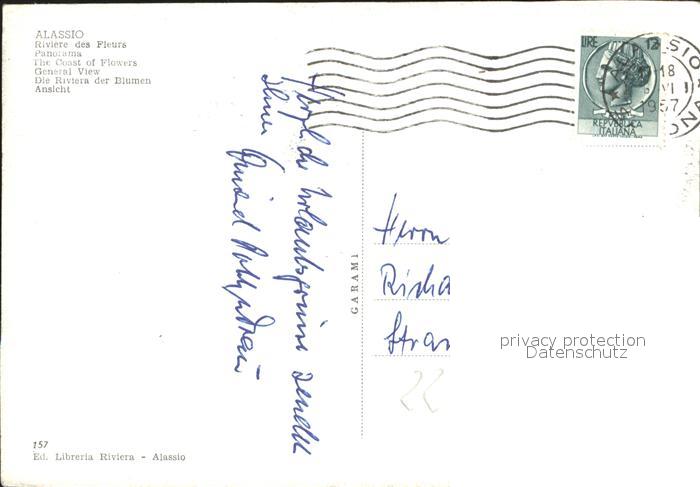 ALASSIO
Rivière des Fleurs
Panorama
The Coast of Flowers
General View
Die Riviera der Blumen
Ansicht
LIRE 12
REPVBBLICA
ITALIANA
18
VI
1957
Herzliche Urlaubsgrüsse sendet
Ihnen
GARAMI
Herrn
Richa
Stras
privacy protection
Datenschutz
22
157
Ed. Libreria Riviera - Alassio